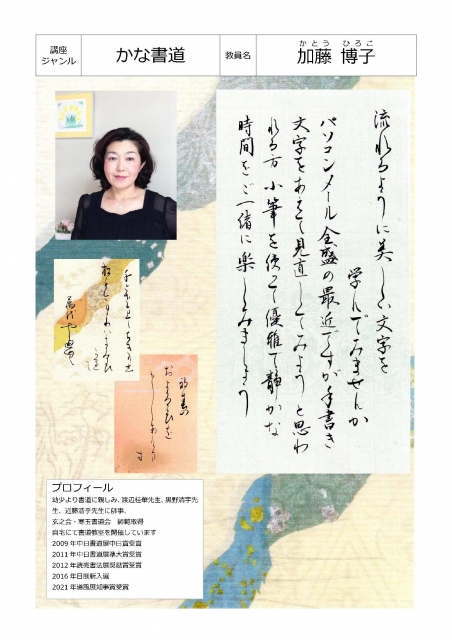 講座
ジャンル
かな書道
教員名
かとう ひろこ
加藤 博子
流れるように美しい文字を
学んでみませんか
パソコンメール全盛の最近ですが手書き
文字をあえて見直してみようと思わ
れる方 小筆を使って優雅で静かな
時間をご一緒に楽しみましょう
プロフィール
幼少より書道に親しみ、渡辺桂華先生、黒野清宇先
生、近藤浩乎先生に師事。
玄之会・寒玉書道会 師範取得
自宅にて書道教室を開催しています
2009年中日書道展中日賞受賞
2011年中日書道展準大賞受賞
2012年読売書法展奨励賞受賞
2016年日展新入選
2021年道風展知事賞受賞